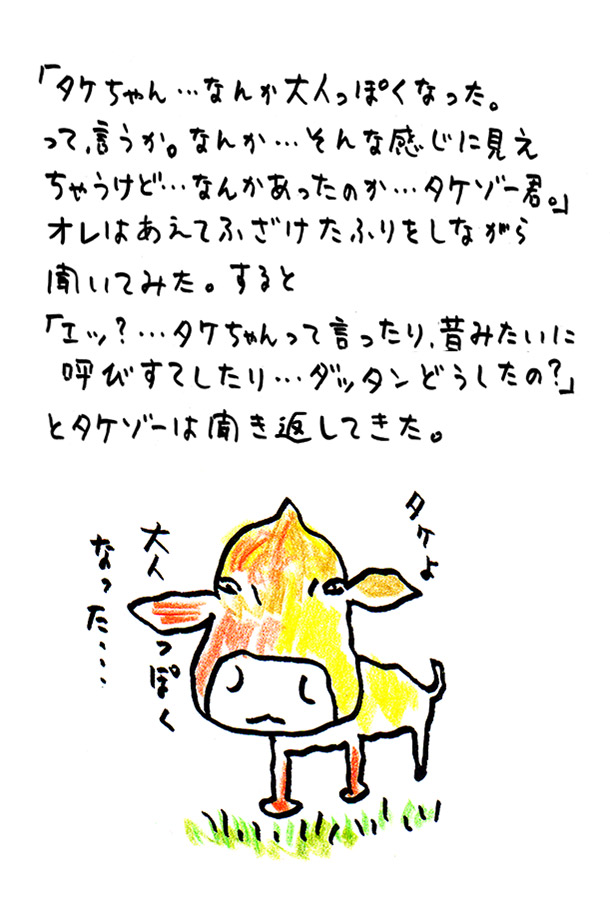 「タケちゃん…なんか大人っぽくなった。
って、言うか。なんか…そんな感じに見え
ちゃうけど…なんかあったのか…タケゾー君。」
オレはあえてふざけたふりをしながら
聞いてみた。すると
「エッ？…タケちゃんって言ったり、昔みたいに
呼びすてしたり…ダッタンどうしたの？」
とタケゾーは聞き返してきた。
タケよ
大人っぽく
なった…